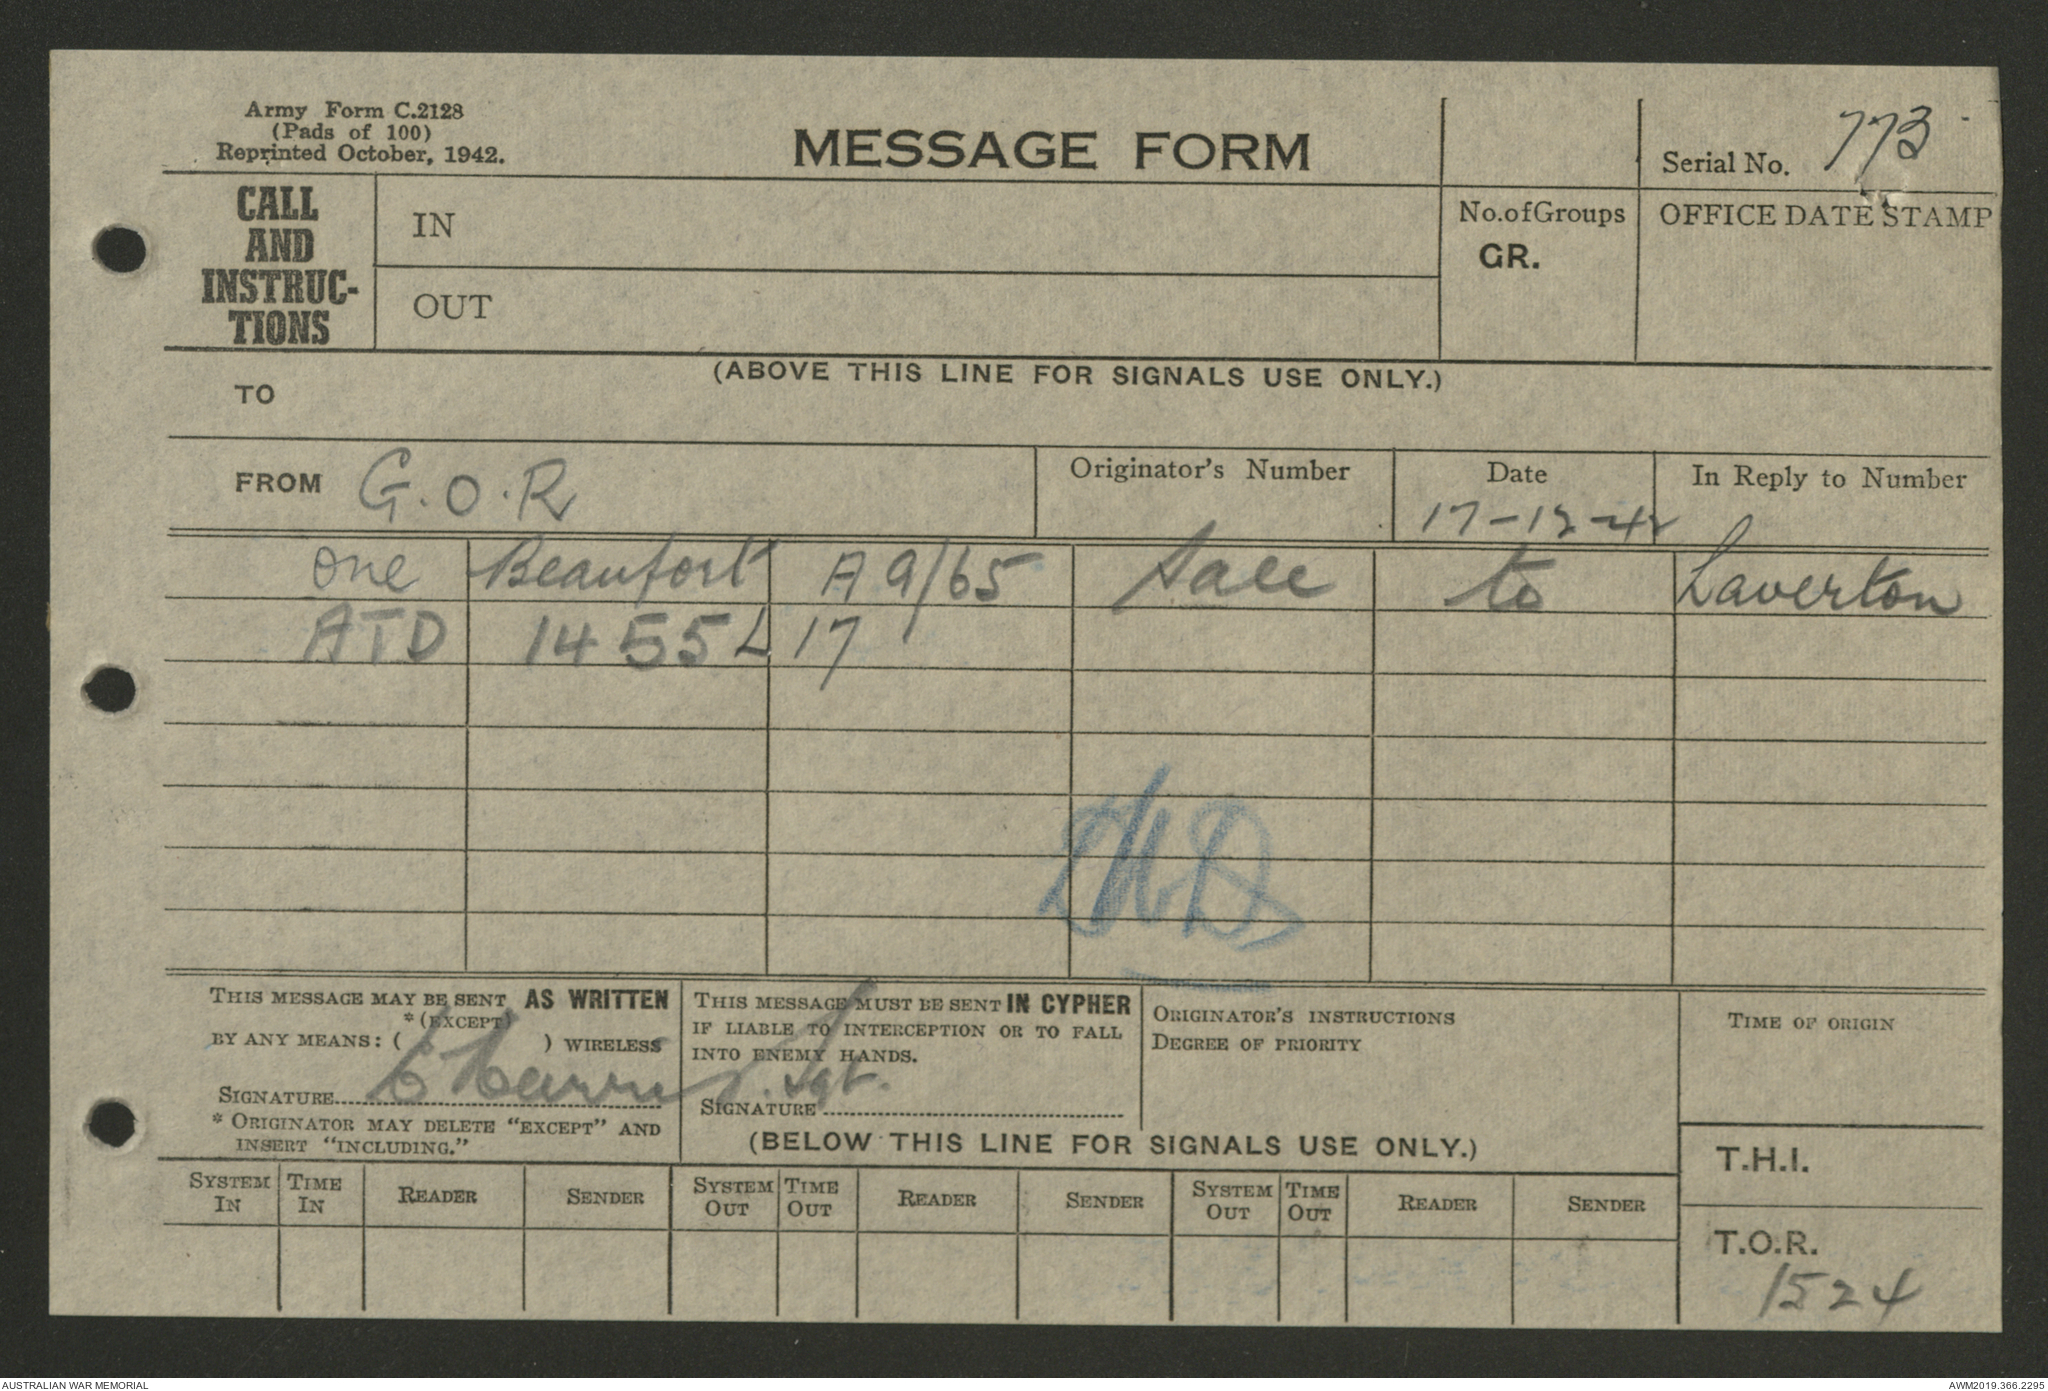 Army Form C.2128
(Pads of 100)
Reprinted October, 1942.
MESSAGE FORM
Serial No. 773
CALL
AND
INSTRUC-
TIONS
IN
OUT
No. of Groups
GR.
OFFICE DATE STAMP
(ABOVE THIS LINE FOR SIGNALS USE ONLY.)
TO
FROM G.O.R
Originator's Number
Date
17-12-42
In Reply to Number
one Beaufort A9/65 Sale to Laverton
ATD 1455L/17
THIS MESSAGE MAY BE SENT AS WRITTEN
* (EXCEPT)
BY ANY MEANS: ( ) WIRELESS
SIGNATURE
Sgt.
* ORIGINATOR MAY DELETE "EXCEPT" AND
INSERT "INCLUDING."
THIS MESSAGE MUST BE SENT IN CYPHER
IF LIABLE TO INTERCEPTION OR TO FALL
INTO ENEMY HANDS.
SIGNATURE
ORIGINATOR'S INSTRUCTIONS
DEGREE OF PRIORITY
TIME OF ORIGIN
(BELOW THIS LINE FOR SIGNALS USE ONLY.)
T.H.I.
SYSTEM IN TIME IN READER SENDER SYSTEM OUT TIME OUT READER SENDER SYSTEM OUT TIME OUT READER SENDER
T.O.R.
1524
AUSTRALIAN WAR MEMORIAL
AWM2019.366.2295